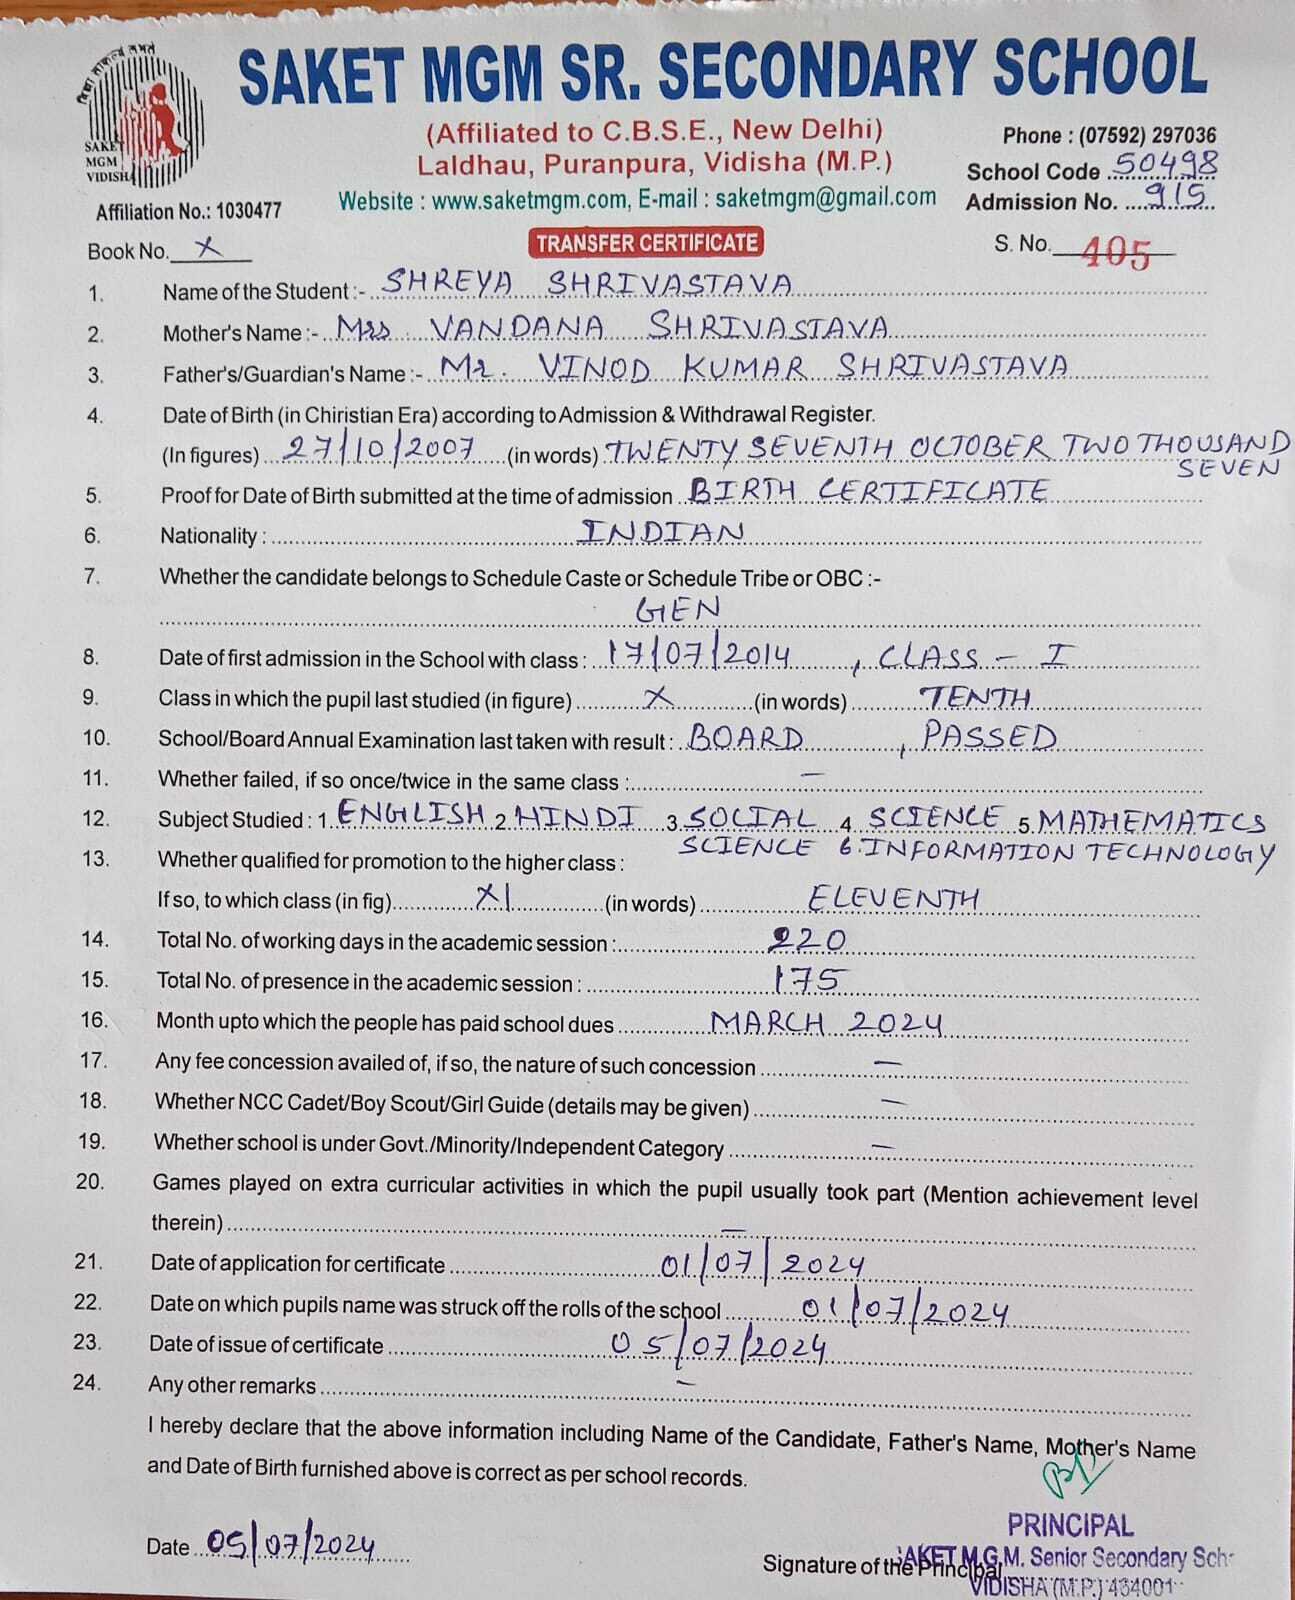 SAKET MGM SR. SECONDARY SCHOOL
(Affiliated to C.B.S.E., New Delhi)
Laldhau, Puranpura, Vidisha (M.P.)
Website : www.saketmgm.com, E-mail : saketmgm@gmail.com
SAKET
MGM
VIDISHA
Phone : (07592) 297036
School Code 50498
Admission No. 915
Affiliation No.: 1030477
Book No. X TRANSFER CERTIFICATE S. No. 405
1. Name of the Student :- SHREYA SHRIVASTAVA
2. Mother's Name :- Mrs VANDANA SHRIVASTAVA
3. Father's/Guardian's Name :- Mr. VINOD KUMAR SHRIVASTAVA
4. Date of Birth (in Chiristian Era) according to Admission & Withdrawal Register.
(In figures) 27/10/2007 (in words) TWENTY SEVENTH OCTOBER TWO THOUSAND
SEVEN
5. Proof for Date of Birth submitted at the time of admission BIRTH CERTIFICATE
6. Nationality : INDIAN
7. Whether the candidate belongs to Schedule Caste or Schedule Tribe or OBC :-
GEN
8. Date of first admission in the School with class : 17/07/2014, CLASS - I
9. Class in which the pupil last studied (in figure) X (in words) TENTH
10. School/Board Annual Examination last taken with result : BOARD, PASSED
11. Whether failed, if so once/twice in the same class : —
12. Subject Studied : 1. ENGLISH 2 HINDI 3 SOCIAL 4 SCIENCE 5 MATHEMATICS
SCIENCE 6. INFORMATION TECHNOLOGY
13. Whether qualified for promotion to the higher class :
If so, to which class (in fig) XI (in words) ELEVENTH
14. Total No. of working days in the academic session : 220
15. Total No. of presence in the academic session : 175
16. Month upto which the people has paid school dues MARCH 2024
17. Any fee concession availed of, if so, the nature of such concession —
18. Whether NCC Cadet/Boy Scout/Girl Guide (details may be given) —
19. Whether school is under Govt./Minority/Independent Category —
20. Games played on extra curricular activities in which the pupil usually took part (Mention achievement level
therein) —
21. Date of application for certificate 01/07/2024
22. Date on which pupils name was struck off the rolls of the school 01/07/2024
23. Date of issue of certificate 05/07/2024
24. Any other remarks —
I hereby declare that the above information including Name of the Candidate, Father's Name, Mother's Name
and Date of Birth furnished above is correct as per school records.
Date 05/07/2024
PRINCIPAL
Signature of the Principal
SAKET M.G.M. Senior Secondary Sch
VIDISHA (M.P.) 464001